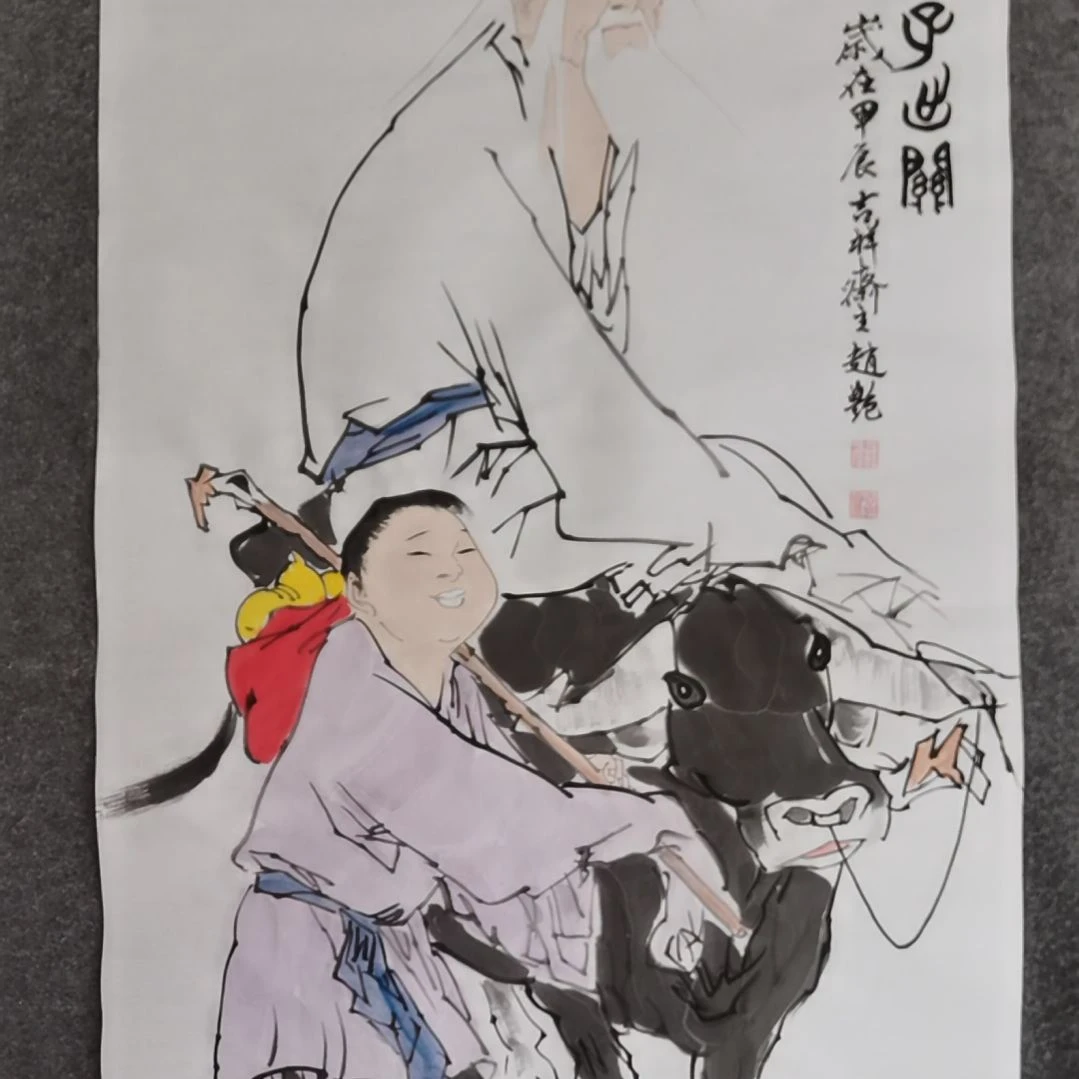 子出關
歲在甲辰吉祥齋主趙艷